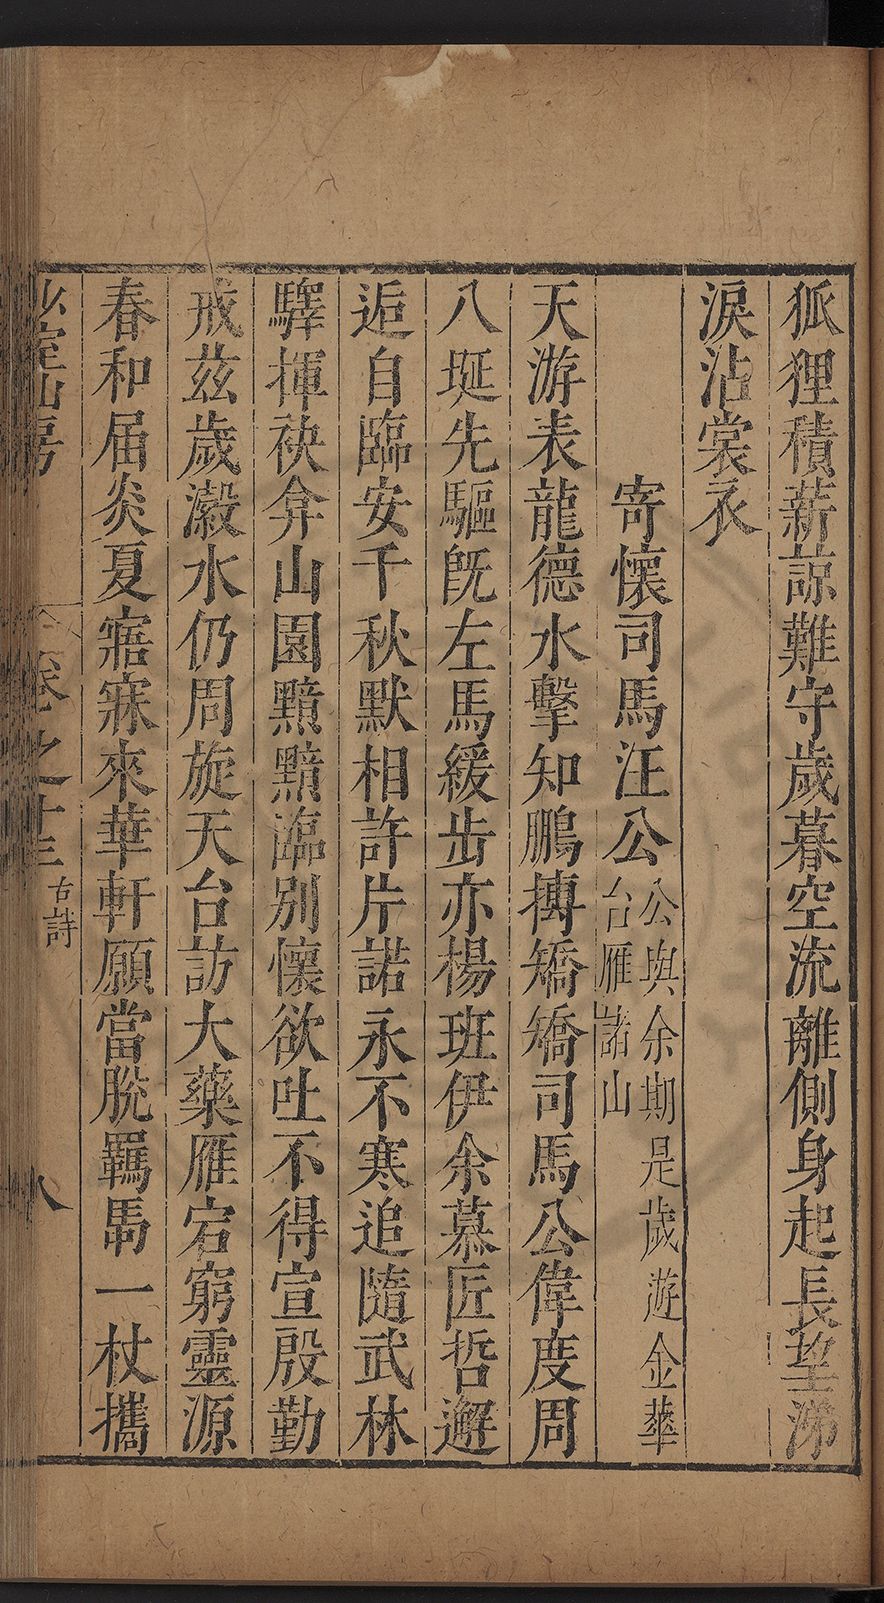 狐狸積薪諒難守歲暮空流離側身起長望涕
淚沾裳衣
寄懷司馬汪公公與余期是歲游金華台雁諸山
天游表龍德水擊知鵬摶矯矯司馬公偉度周
八埏先驅旣左馬緩步亦楊班伊余慕匠哲邂
逅自臨安千秋默相許片諾永不寒追隨武林
驛揮袂弇山園黯黯臨別懷欲吐不得宣殷勤
戒茲歲瀫水仍周旋天台訪大藥雁宕窮靈源
春和届炎夏寤寐來華軒願當脫羈馽一杖攜
少室山房 卷之十三 古詩 八